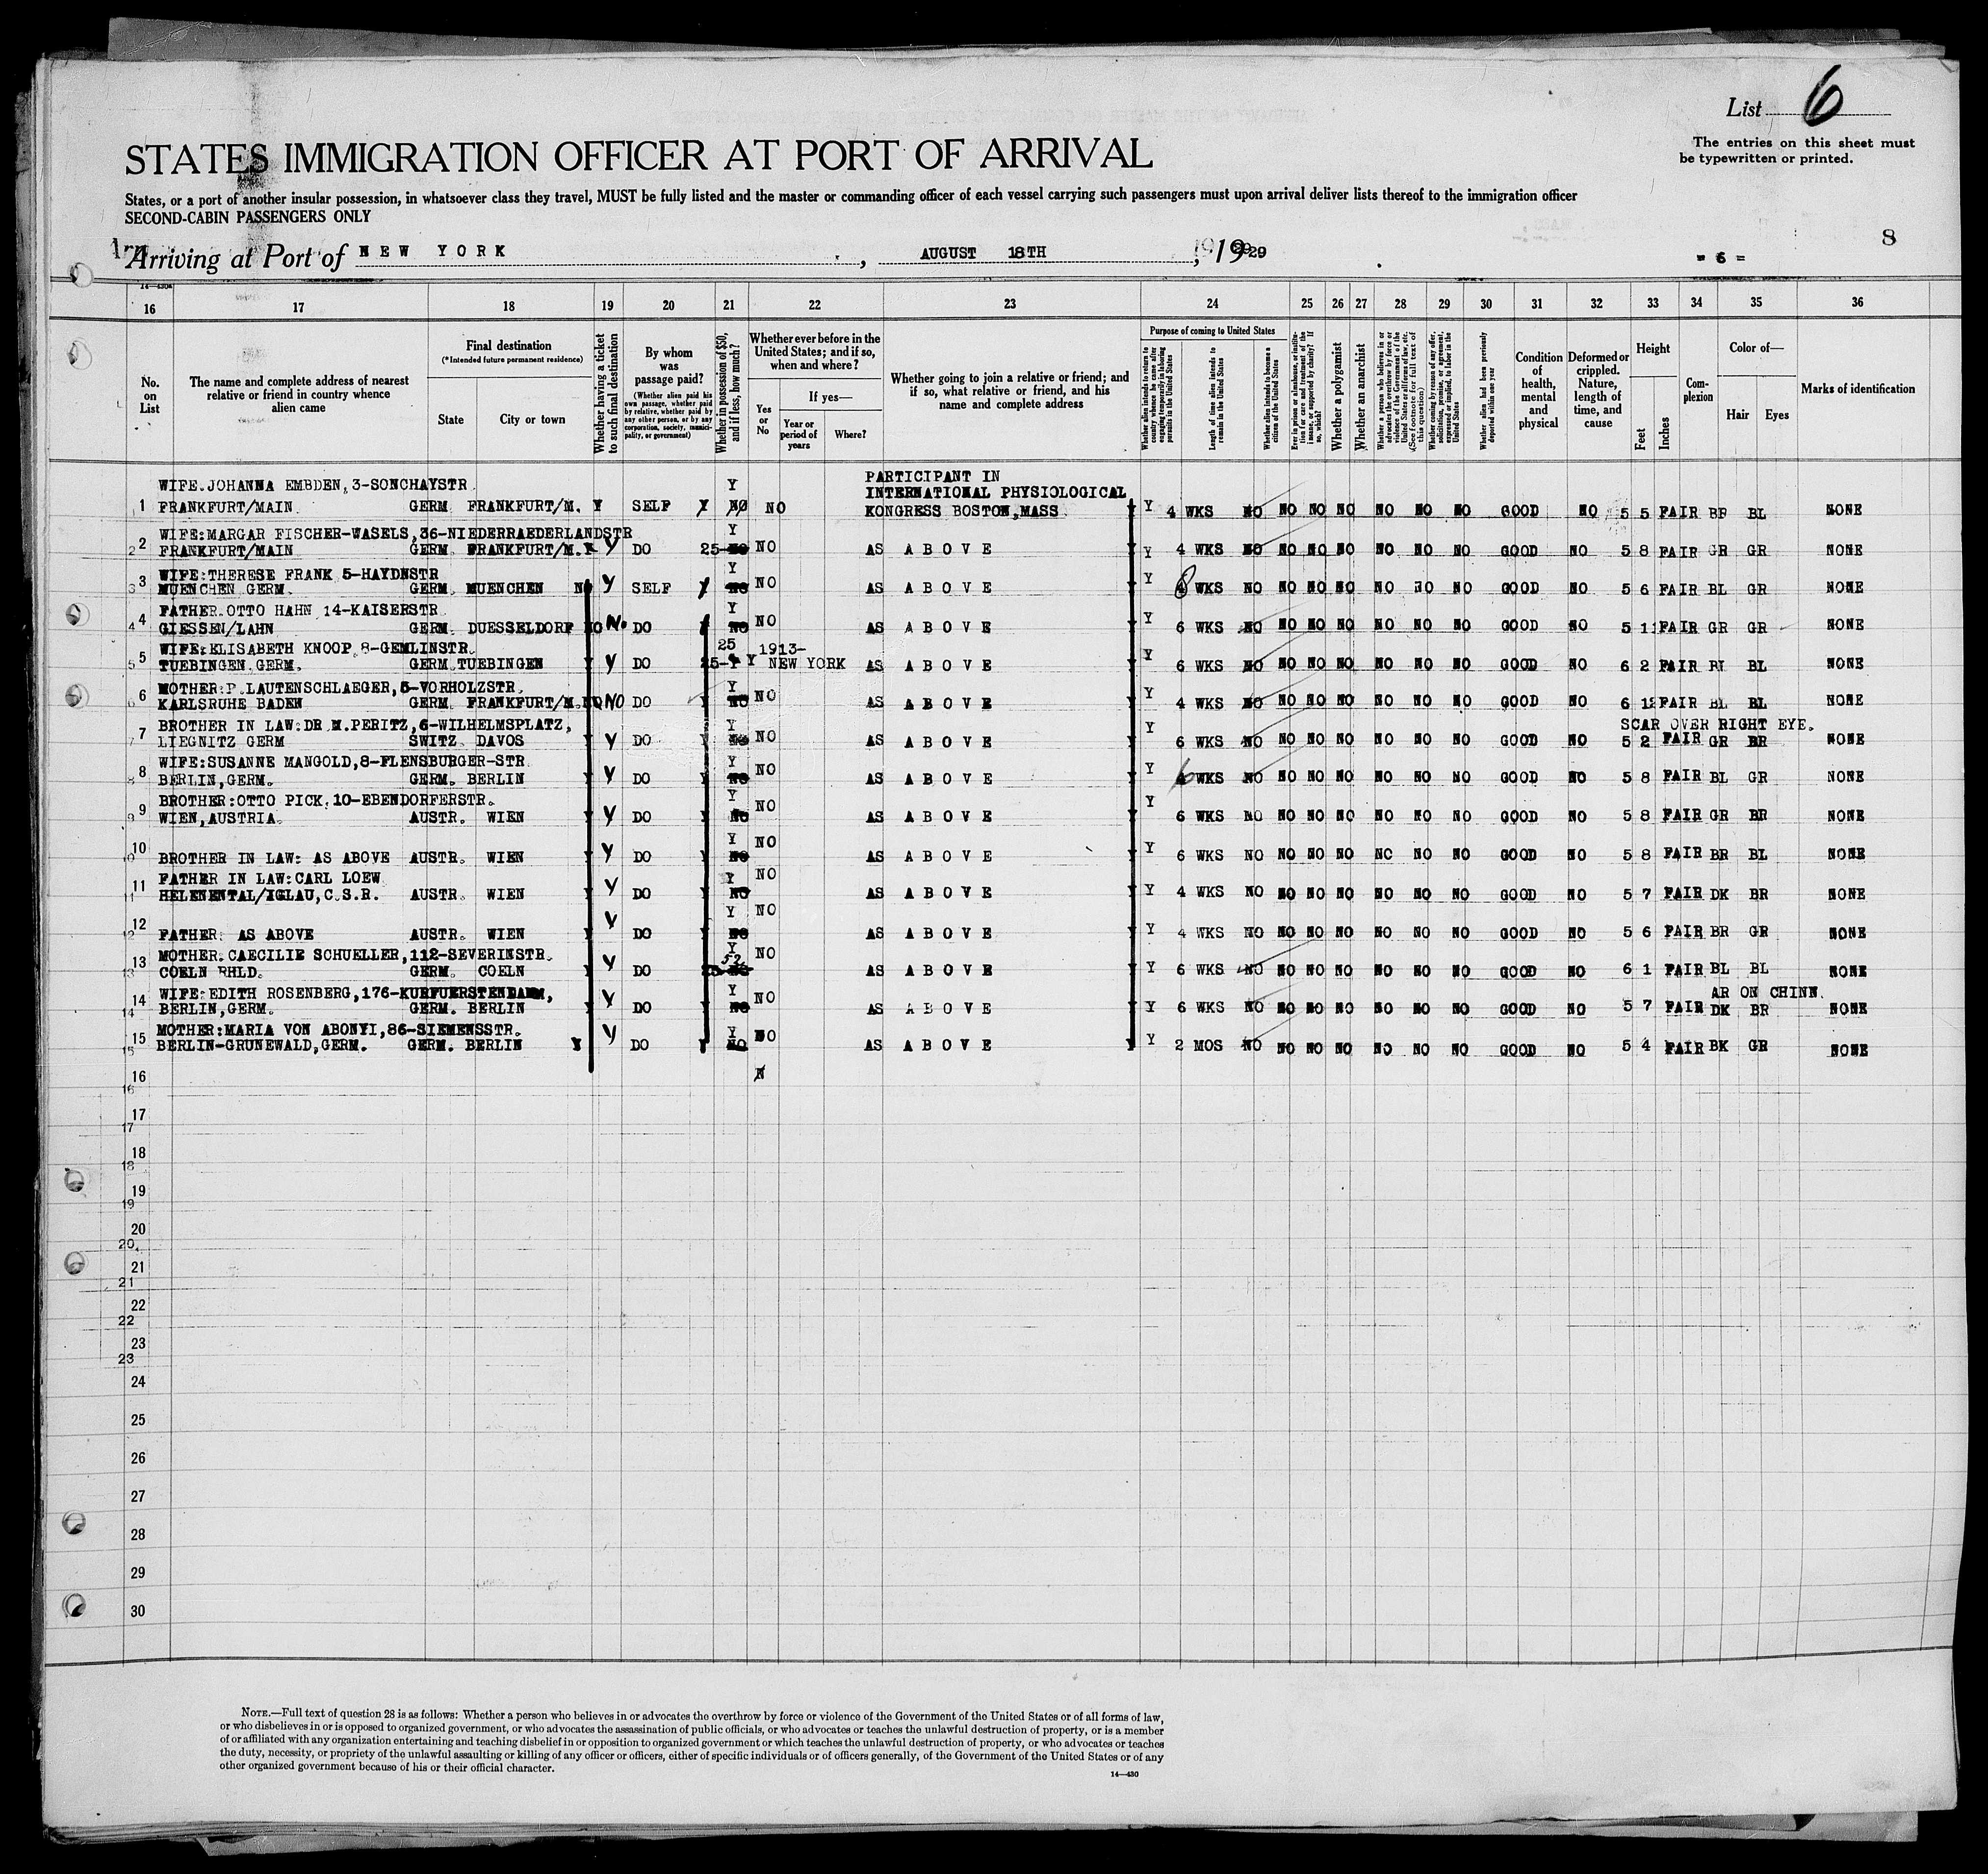 List 6
The entries on this sheet must
be typewritten or printed.
STATES IMMIGRATION OFFICER AT PORT OF ARRIVAL
States, or a port of another insular possession, in whatsoever class they travel, MUST be fully listed and the master or commanding officer of each vessel carrying such passengers must upon arrival deliver lists thereof to the immigration officer
SECOND-CABIN PASSENGERS ONLY
8
Arriving at Port of NEW YORK, AUGUST 18TH, 1929
= 6 =
16 17 18 19 20 21 22 23 24 25 26 27 28 29 30 31 32 33 34 35 36
No. on List
The name and complete address of nearest relative or friend in country whence alien came
Final destination
(*Intended future permanent residence)
State
City or town
Whether having a ticket to such final destination
By whom was passage paid?
(Whether alien paid his own passage, whether paid by relative, whether paid by any other person, or by any corporation, society, municipality, or government)
Whether in possession of $50, and if less, how much?
Whether ever before in the United States; and if so, when and where?
Yes or No
If yes—
Year or period of years
Where?
Whether going to join a relative or friend; and if so, what relative or friend, and his name and complete address
Purpose of coming to United States
Whether alien intends to return to country whence he came after engaging temporarily in laboring pursuits in the United States
Length of time alien intends to remain in the United States
Whether alien intends to become a citizen of the United States
Ever in prison or almshouse, or institution for care and treatment of the insane, or supported by charity? If so, which?
Whether a polygamist
Whether an anarchist
Whether a person who believes in or advocates the overthrow by force or violence of the Government of the United States or all forms of law, etc. (See footnote for full text of this question)
Whether coming by reason of any offer, solicitation, promise, or agreement, expressed or implied, to labor in the United States
Whether alien had been previously deported within one year
Condition of health, mental and physical
Deformed or crippled. Nature, length of time, and cause
Height
Feet
Inches
Complexion
Color of—
Hair
Eyes
Marks of identification
WIFE.JOHANNA EMBDEN,3-SONCHAYSTR. Y PARTICIPANT IN
INTERNATIONAL PHYSIOLOGICAL
1 FRANKFURT/MAIN GERM FRANKFURT/M. Y SELF Y NO NO KONGRESS BOSTON,MASS Y 4 WKS NO NO NO NO NO NO NO GOOD NO 5 5 FAIR BL NONE
WIFE:MARGAR FISCHER-WASELS,36-NIEDERRAEDERLANDSTR Y
2 FRANKFURT/MAIN GERM. FRANKFURT/M. Y DO 25 NO NO AS ABOVE Y 4 WKS NO NO NO NO NO NO NO GOOD NO 5 8 FAIR GR GR NONE
WIFE:THERESE FRANK 5-HAYDNSTR Y
3 MUENCHEN GERM. GERM. MUENCHEN Y SELF Y NO NO AS ABOVE Y 8 WKS NO NO NO NO NO NO NO GOOD NO 5 6 FAIR BL GR NONE
FATHER.OTTO HAHN 14-KAISERSTR Y
4 GIESSEN/LAHN GERM. DUESSELDORF NO No DO NO NO AS ABOVE Y 6 WKS NO NO NO NO NO NO NO GOOD NO 5 11 FAIR GR GR NONE
WIFE:ELISABETH KNOOP 8-GEMLINSTR. 25 1913-
5 TUEBINGEN GERM. GERM.TUEBINGEN Y DO 25 Y NEW YORK AS ABOVE Y 6 WKS NO NO NO NO NO NO NO GOOD NO 6 2 FAIR BL BL NONE
MOTHER:P.LAUTENSCHLAEGER,5-VORHOLZSTR. Y
6 KARLSRUHE BADEN GERM. FRANKFURT/M. NO DO NO NO AS ABOVE Y 4 WKS NO NO NO NO NO NO NO GOOD NO 6 FAIR BL BL NONE
BROTHER IN LAW:DR M.PERITZ,6-WILHELMSPLATZ, Y SCAR OVER RIGHT EYE.
7 LIEGNITZ GERM SWITZ. DAVOS Y DO NO NO AS ABOVE Y 6 WKS NO NO NO NO NO NO NO GOOD NO 5 2 FAIR GR BR NONE
WIFE:SUSANNE MANGOLD,8-FLENSBURGER-STR. Y
8 BERLIN,GERM. GERM. BERLIN Y DO NO NO AS ABOVE Y 6 WKS NO NO NO NO NO NO NO GOOD NO 5 8 FAIR BL GR NONE
BROTHER:OTTO PICK.10-EBENDORFERSTR. Y
9 WIEN,AUSTRIA. AUSTR. WIEN Y DO NO NO AS ABOVE Y 6 WKS NO NO NO NO NO NO NO GOOD NO 5 8 FAIR GR BR NONE
Y
10 BROTHER IN LAW: AS ABOVE AUSTR. WIEN Y DO NO NO AS ABOVE Y 6 WKS NO NO NO NO NO NO NO GOOD NO 5 8 FAIR BR BL NONE
FATHER IN LAW:CARL LOEW Y
11 HELENENTAL/IGLAU,C.S.R. AUSTR. WIEN Y DO NO NO AS ABOVE Y 4 WKS NO NO NO NO NO NO NO GOOD NO 5 7 FAIR DK BR NONE
Y
12 FATHER: AS ABOVE AUSTR. WIEN Y DO NO NO AS ABOVE Y 4 WKS NO NO NO NO NO NO NO GOOD NO 5 6 FAIR BR GR NONE
MOTHER.CAECILIE SCHUELLER,112-SEVERINSTR. Y
13 COELN RHLD. GERM. COELN Y DO NO AS ABOVE Y 6 WKS NO NO NO NO NO NO NO GOOD NO 6 1 FAIR BL BL NONE
WIFE:EDITH ROSENBERG,176-KURFUERSTENDAMM, Y AR ON CHINN.
14 BERLIN,GERM. GERM. BERLIN Y DO NO NO AS ABOVE Y 6 WKS NO NO NO NO NO NO NO GOOD NO 5 7 FAIR DK BR NONE
MOTHER:MARIA VON ABONYI,86-SIEMENSSTR. Y
15 BERLIN-GRUNEWALD,GERM. GERM. BERLIN Y DO NO NO AS ABOVE Y 2 MOS NO NO NO NO NO NO NO GOOD NO 5 4 FAIR BK GR NONE
16 N
17
18
19
20
21
22
23
24
25
26
27
28
29
30
NOTE.—Full text of question 28 is as follows: Whether a person who believes in or advocates the overthrow by force or violence of the Government of the United States or of all forms of law,
or who disbelieves in or is opposed to organized government, or who advocates the assassination of public officials, or who advocates or teaches the unlawful destruction of property, or is a member
of or affiliated with any organization entertaining and teaching disbelief in or opposition to organized government or which teaches the unlawful destruction of property, or who advocates or teaches
the duty, necessity, or propriety of the unlawful assaulting or killing of any officer or officers, either of specific individuals or of officers generally, of the Government of the United States or of any
other organized government because of his or their official character.
14—430